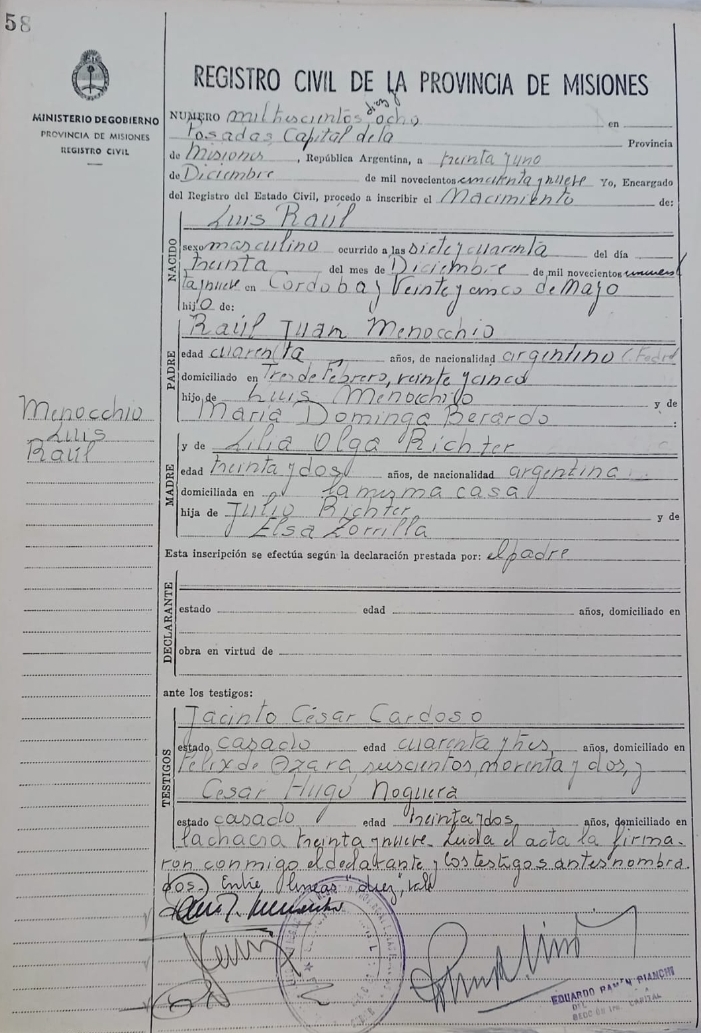 58
MINISTERIO DE GOBIERNO
PROVINCIA DE MISIONES
REGISTRO CIVIL
REGISTRO CIVIL DE LA PROVINCIA DE MISIONES
diez y
NUMERO mil trescientos ocho en
Posadas, Capital de la Provincia
de Misiones, República Argentina, a treinta y uno
de Diciembre de mil novecientos cincuenta y nueve Yo, Encargado
del Registro del Estado Civil, procedo a inscribir el Nacimiento de:
NACIDO
Luis Raúl
sexo masculino ocurrido a las siete y cuarenta del día
treinta del mes de Diciembre de mil novecientos cincuen
ta y nueve en Córdoba y Veinte y cinco de Mayo
hijo de:
PADRE
Raúl Juan Menocchio
edad cuarenta años, de nacionalidad argentino
domiciliado en Tres de Febrero, veinte y cinco
hijo de Luis Menocchio y de
María Dominga Berardo
Menocchio
Luis
Raúl
MADRE
y de Lilia Olga Richter
edad treinta y dos años, de nacionalidad argentina
domiciliada en la misma casa
hija de Julio Richter y de
Elsa Zorrilla
Esta inscripción se efectúa según la declaración prestada por: el padre
DECLARANTE
estado edad años, domiciliado en
obra en virtud de
ante los testigos:
TESTIGOS
Jacinto César Cardoso
estado casado edad cuarenta y tres, años, domiciliado en
Félix de Azara, seiscientos noventa y dos, y
César Hugo Noguera
estado casado edad treinta y dos años, domiciliado en
la chacra treinta y nueve. Leida el acta la firma-
ron conmigo el declarante y los testigos antes nombra-
dos. Entre líneas "diez", vale
EDUARDO RAMÓN BIANCHI